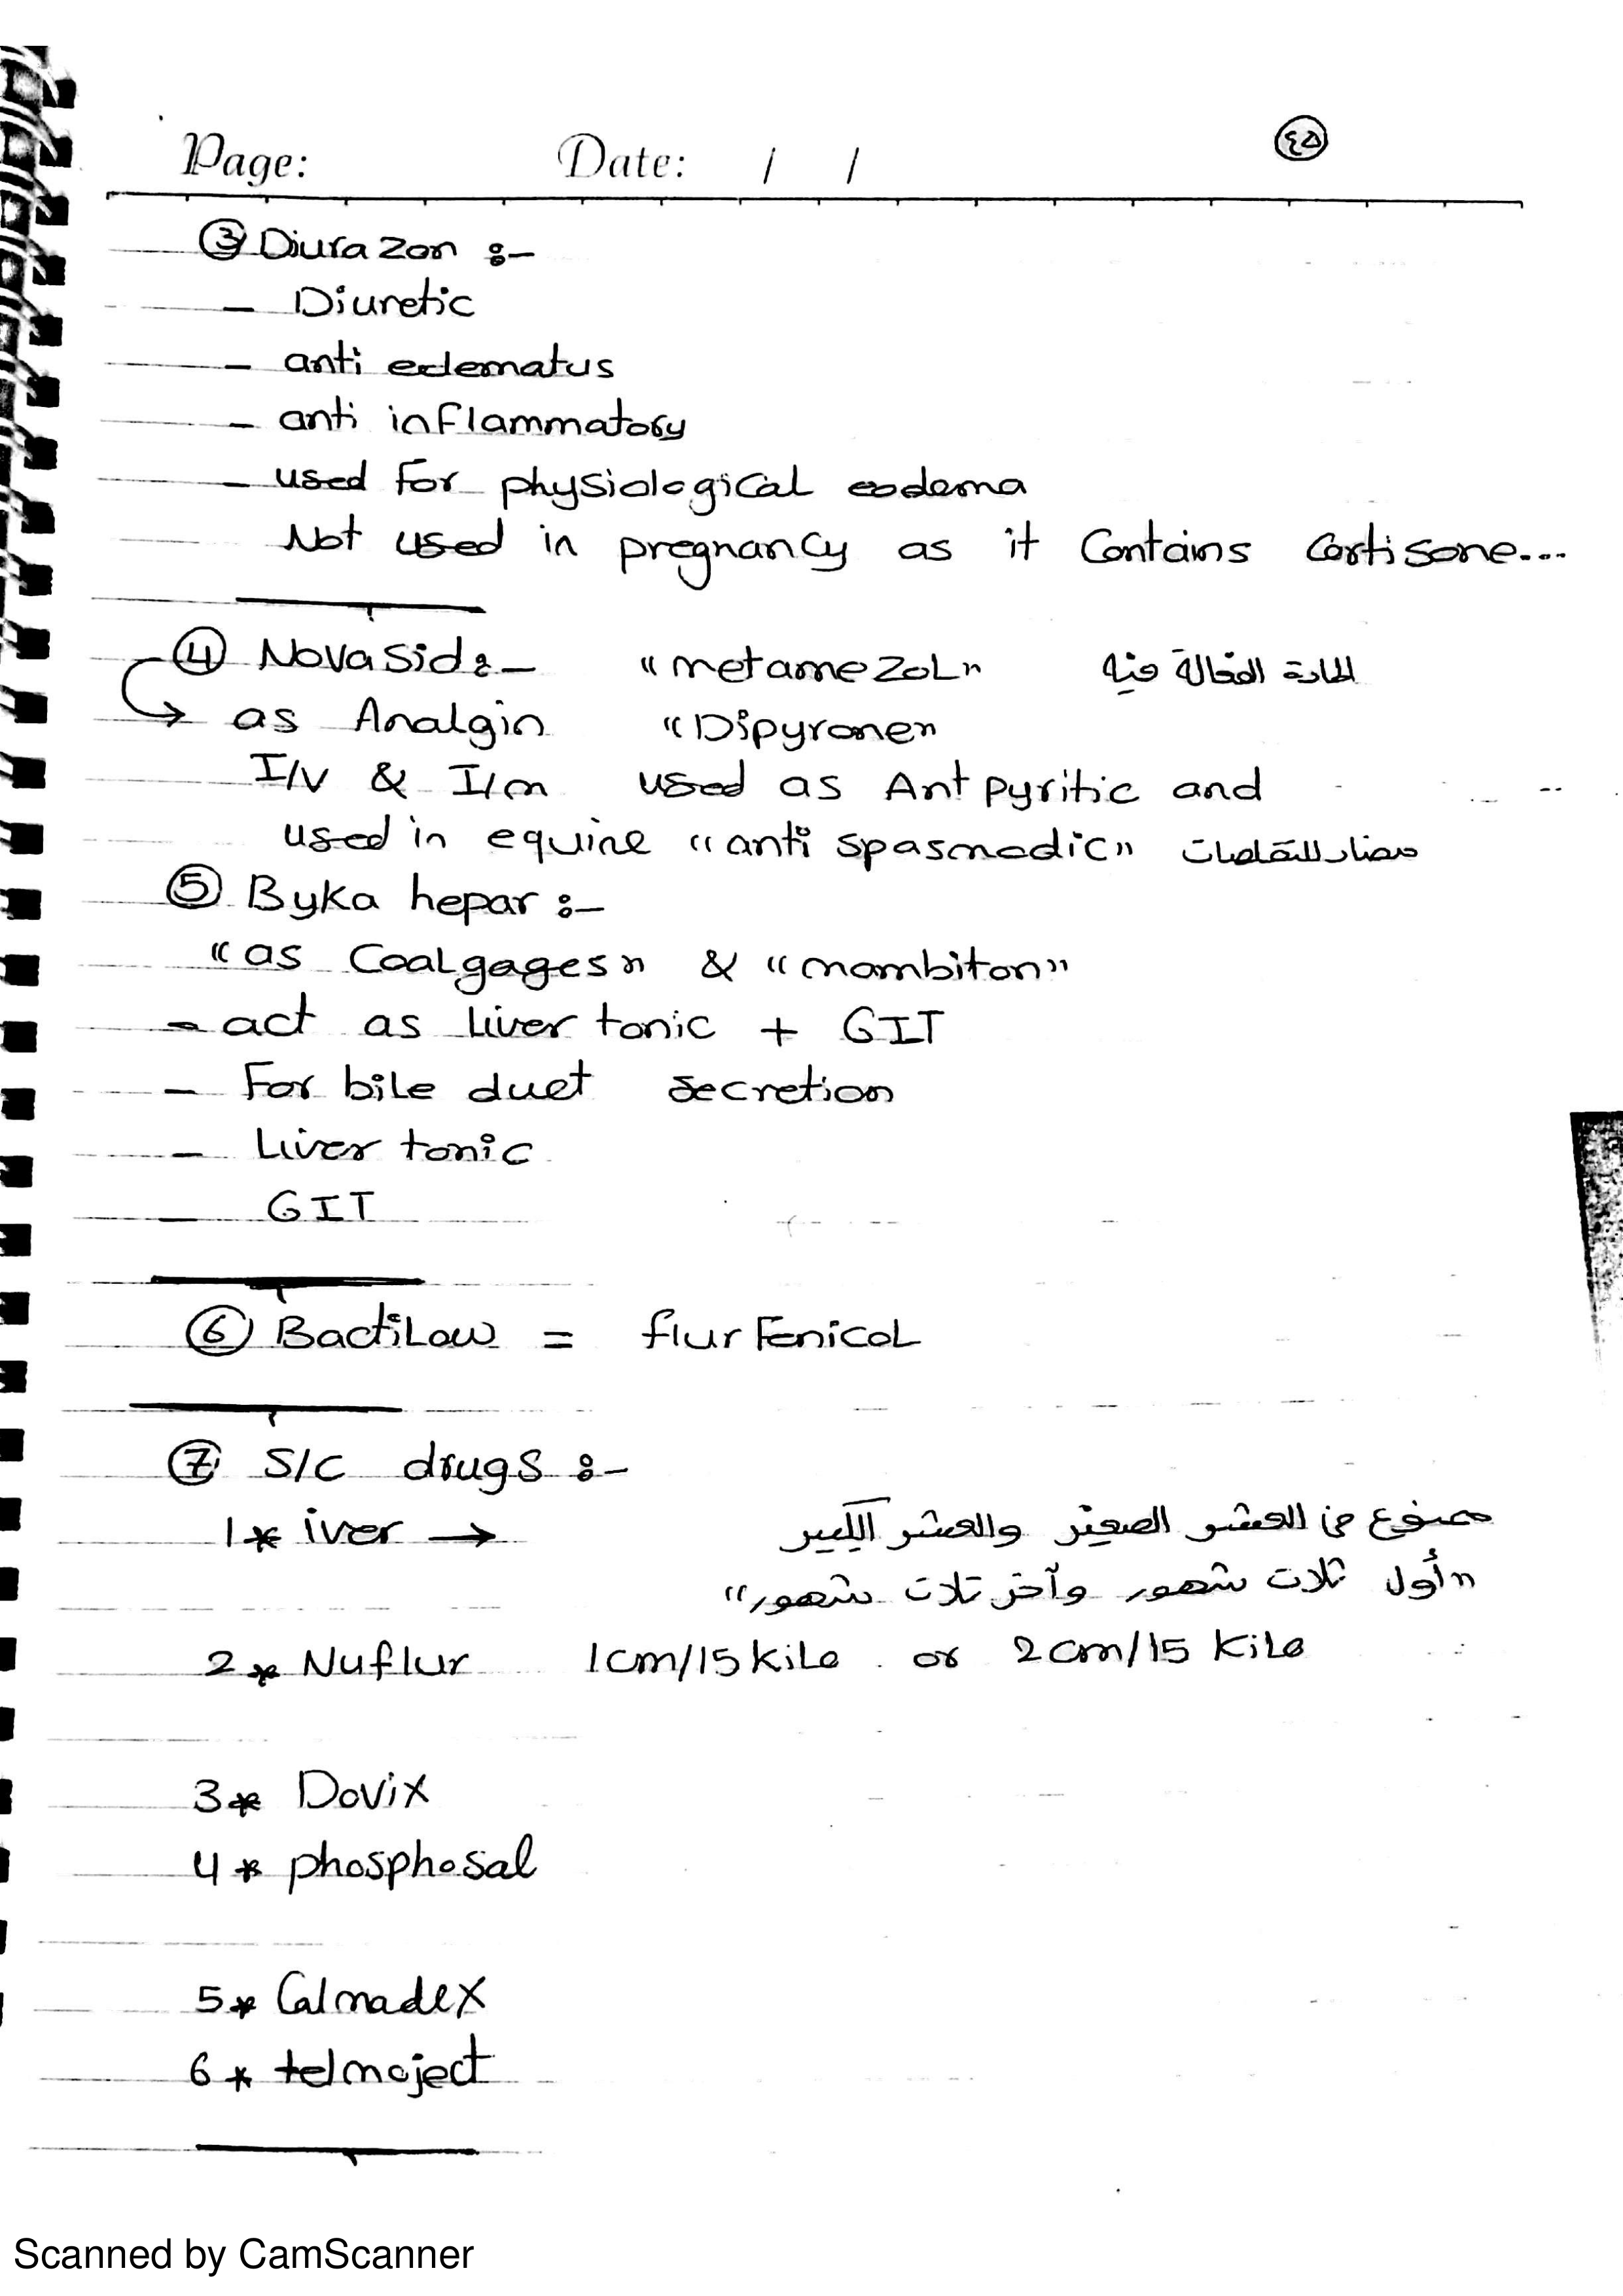 Page: Date: / / ٤٥
③ Diurazon :-
- Diuretic
- anti edematus
- anti inflammatory
- used for physiological eodema
Not used in pregnancy as it Contains Cortisone...
④ Novasid :- "metamezol" المادة الفعالة فيه
as Analgin "Dipyrone"
I/V & I/m used as Antpyritic and
used in equine "anti spasmodic" مضاد للتقلصات
⑤ Byka hepar :-
"as Coalgages" & "mambiton"
- act as liver tonic + GIT
- For bile duet secretion
- Liver tonic
- GIT
⑥ Bactilow = flurFenicol
⑦ S/C drugs :-
1* iver → ممنوع في العشر الصغير والعشر الكبير
"أول ثلاث شهور وآخر تلات شهور"
2* Nuflur 1cm/15 kilo or 2cm/15 kilo
3* Dovix
4* phosphosal
5* Calmadex
6* telmoject
Scanned by CamScanner